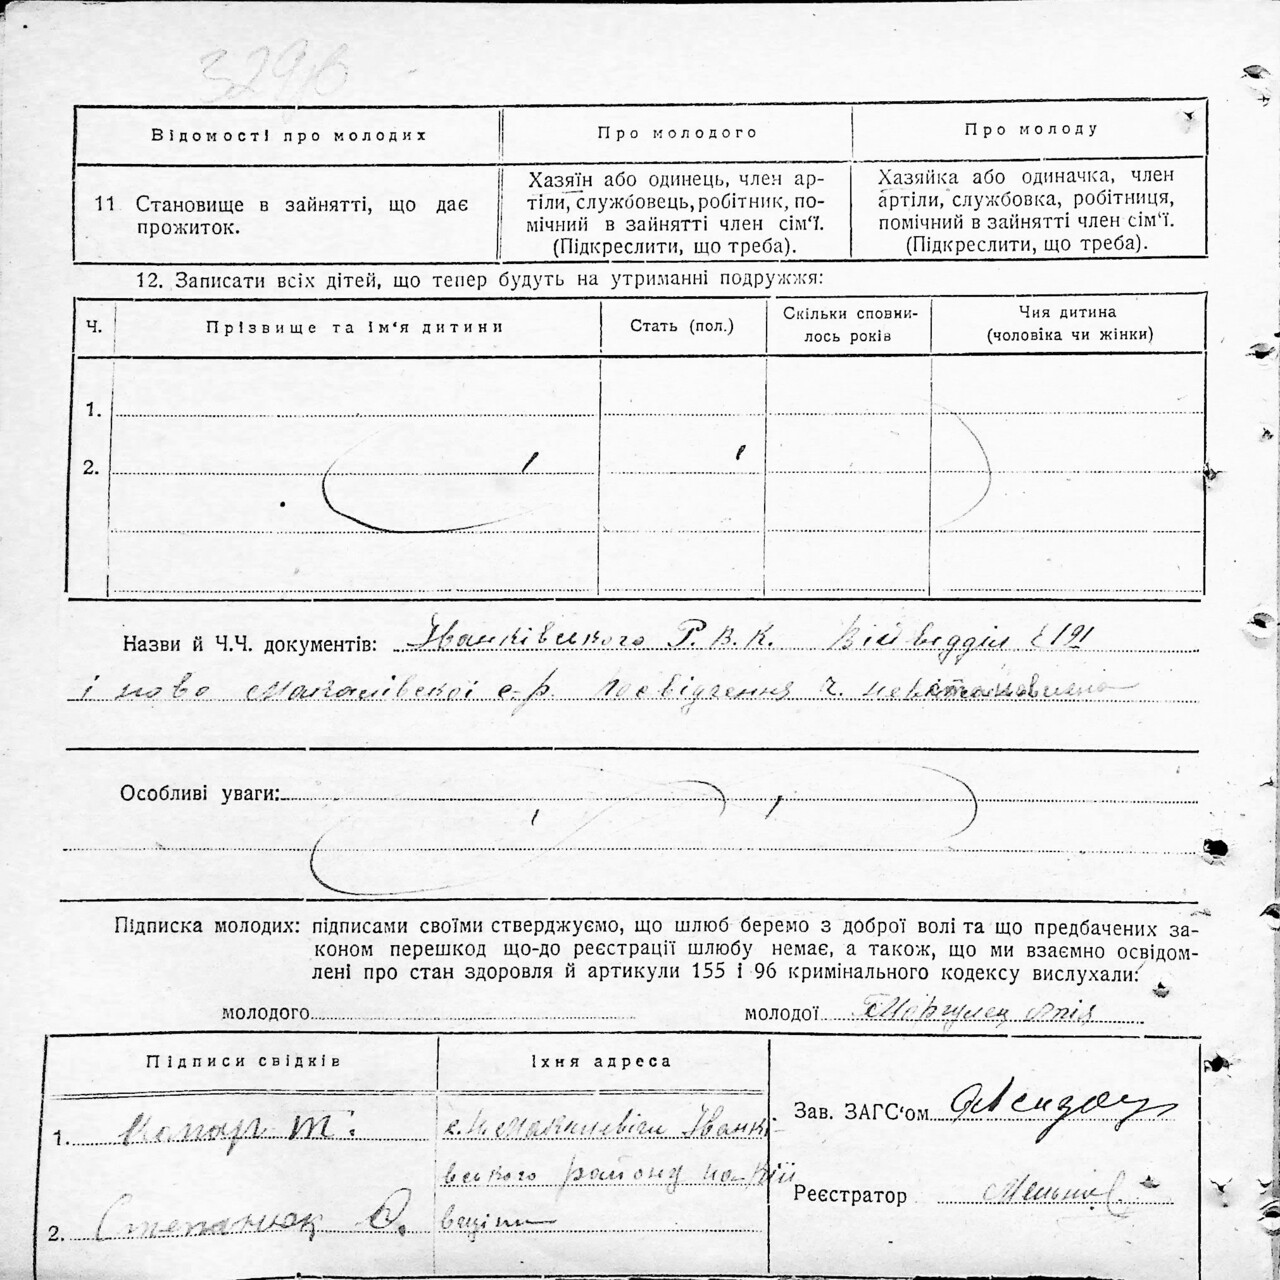 329
Відомості про молодих
Про молодого
Про молоду
11 Становище в зайнятті, що дає
прожиток.
Хазяїн або одинець, член ар-
тіли, службовець, робітник, по-
мічний в зайнятті член сім'ї.
(Підкреслити, що треба).
Хазяйка або одиначка, член
артіли, службовка, робітниця,
помічний в зайнятті член сім'ї.
(Підкреслити, що треба).
12. Записати всіх дітей, що тепер будуть на утриманні подружжя:
Ч.
Прізвище та ім'я дитини
Стать (пол.)
Скільки сповни-
лось років
Чия дитина
(чоловіка чи жінки)
1.
2.
Назви й Ч.Ч. документів: Іванківського Р. В. К. Військвідділ 191
і ново с-р. посвідчення ч.
Особливі уваги:
Підписка молодих: підписами своїми стверджуємо, що шлюб беремо з доброї волі та що предбачених за-
коном перешкод що-до реєстрації шлюбу немає, а також, що ми взаємно освідом-
лені про стан здоровля й артикули 155 і 96 кримінального кодексу вислухали:
молодого
молодої
Підписи свідків
Їхня адреса
1.
Т.
с. Іванкі-
вського району на Кий
2. Степанюк О.
вщині
Зав. ЗАГС'ом
Реєстратор